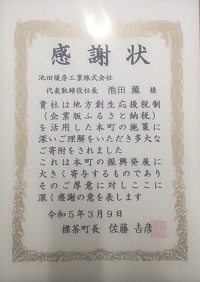 感謝状
池田煖房工業株式会社
代表取締役社長 池田 薫 様
貴社は地方創生応援税制
(企業版ふるさと納税)
を活用した本町の施策に
深いご理解をいただき多大な
ご寄附をされました
これは本町の振興発展に
大きく寄与するものであり
そのご厚意に対しここに
深く感謝の意を表します
令和5年3月9日
標茶町長 佐藤 吉彦